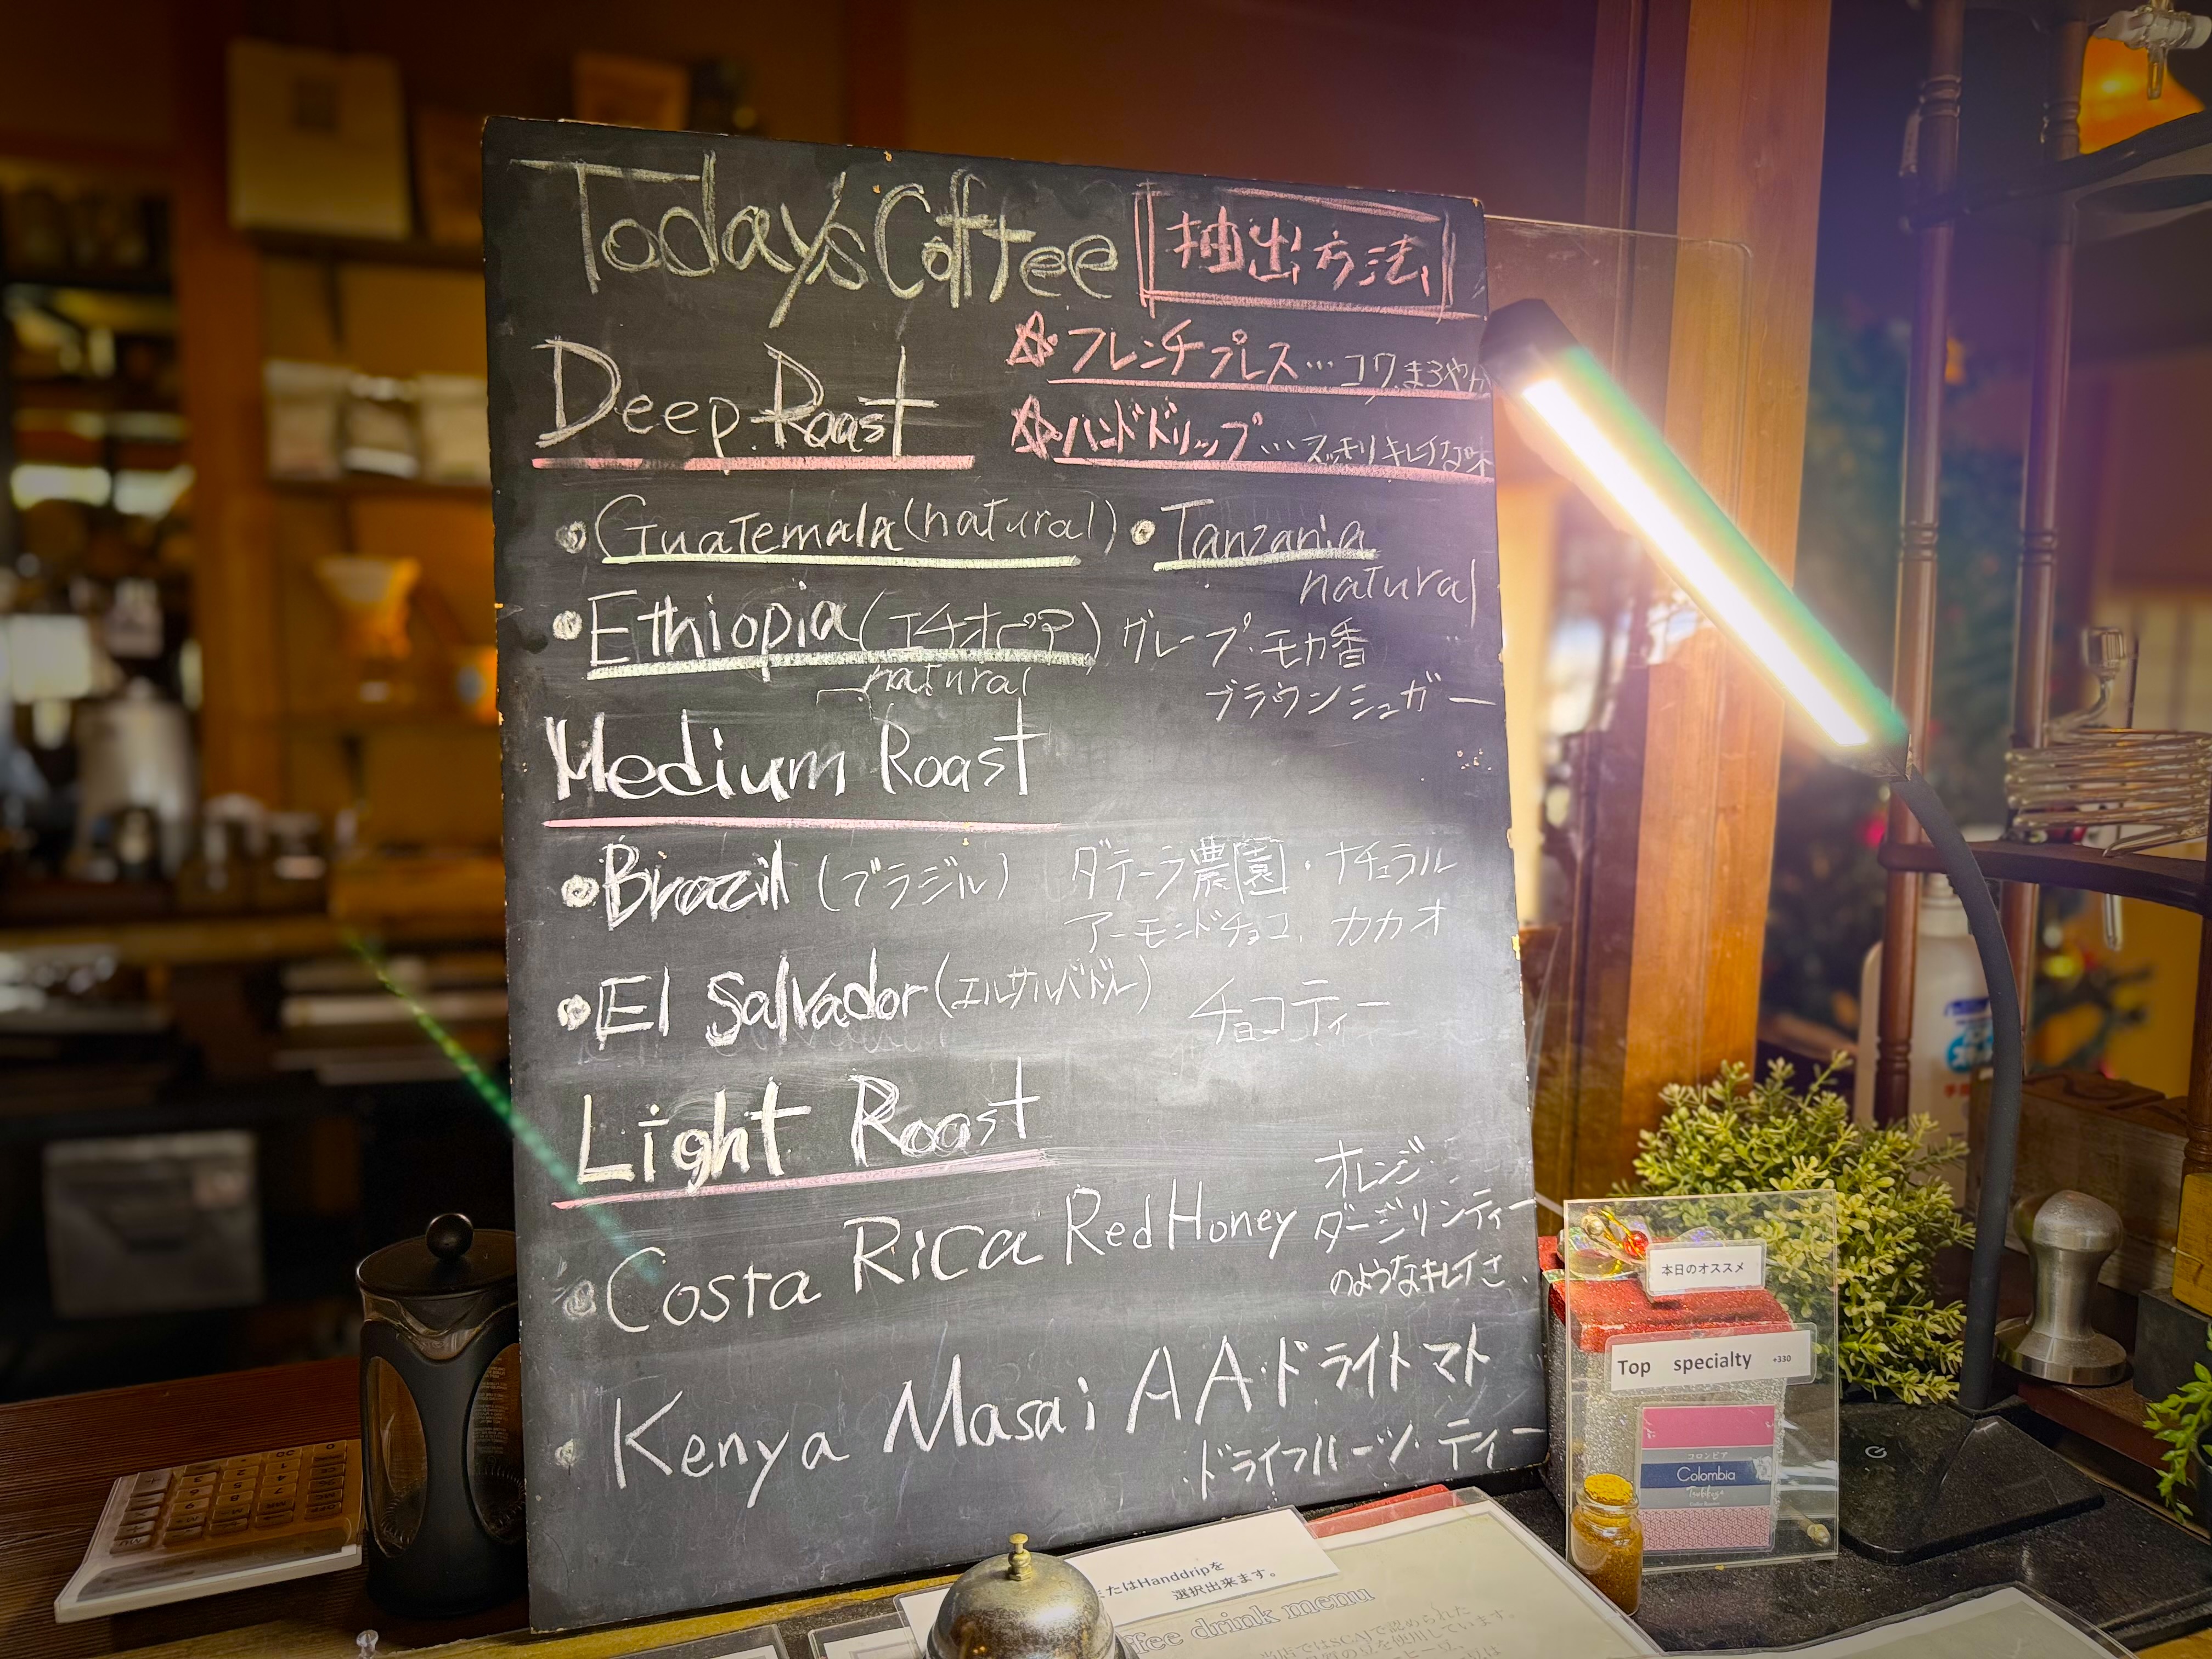 Today's Coffee
抽出方法
Deep Roast
☆フレンチプレス…コク、まろやか
☆ハンドドリップ…スッキリキレイな味
•Guatemala(natural)
•Tanzania
natural
•Ethiopia(エチオピア)
natural
グレープ・モカ香
ブラウンシュガー
Medium Roast
•Brazil(ブラジル)
ダテーラ農園・ナチュラル
アーモンドチョコ、カカオ
•El Salvador(エルサルバドル)
チョコティー
Light Roast
•Costa Rica Red Honey
オレンジ・
ダージリンティー
のようなキレイさ、
•Kenya Masai AA・ドライトマト
・ドライフルーツ・ティー
本日のオススメ
Top specialty +330
コロンビア
Colombia
またはHanddripを
選択出来ます。
coffee drink menu
当店ではSCAJで認められた
を使用しています。